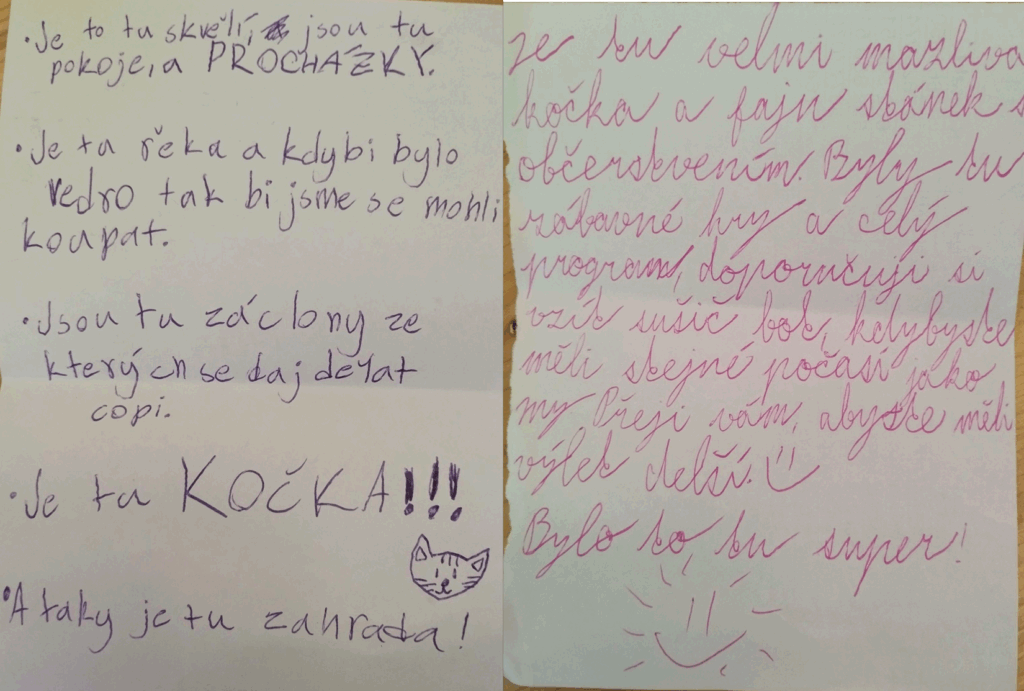 ·Je to tu skvělí, jsou tu
pokoje, a PROCHÁZKY.
·Je tu řěka a kdybi bylo
vedro tak bi jsme se mohli
koupat.
·Jsou tu záclony ze
kterých se daj dělat
copi.
·Je tu KOČKA!!!
·A taky je tu zahrada!
je tu velmi mazliva
kočka a fajn stánek s
občerstvením. Byly tu
zábavné hry a celý
program, doporučuji si
vzít sušič bot, kdybyste
měli stejné počasí jako
my. Přeji vám, abyste měli
výlet delší.
Bylo to, tu super!